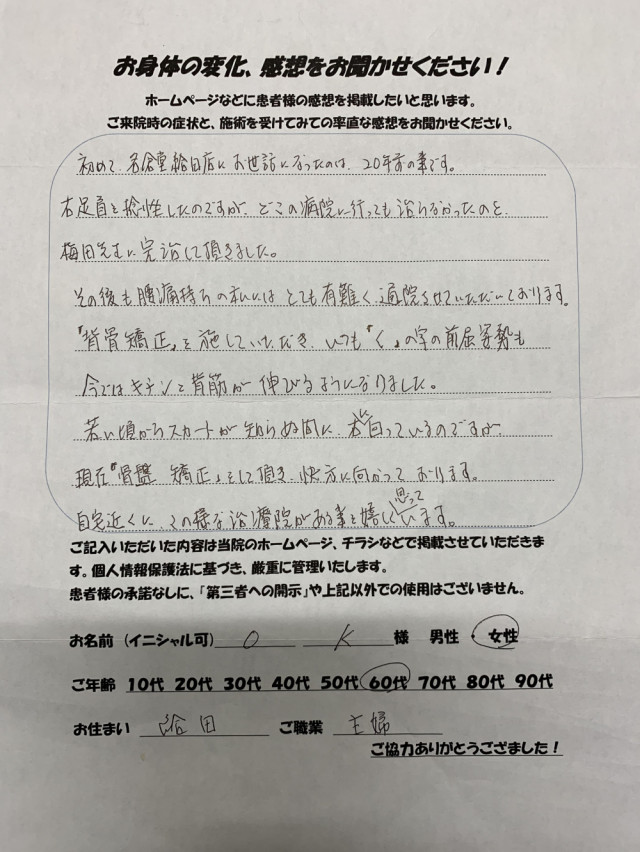 お身体の変化、感想をお聞かせください！
ホームページなどに患者様の感想を掲載したいと思います。
ご来院時の症状と、施術を受けてみての率直な感想をお聞かせください。
初めて、名倉堂給田店にお世話になったのは、20年前の事です。
右足首を捻挫したのですが、どこの病院に行っても治らなかったのを、
梅田先生に完治して頂きました。
その後も腰痛持ちの私にはとても有難く、通院させていただいております。
「背骨矯正」を施していただき、いつも「く」の字の前屈姿勢も
今ではキチンと背筋が伸びるようになりました。
若い頃からスカートが知らぬ間に、右に回っているのですが、
現在「骨盤 矯正」をして頂き、快方に向かって おります。
自宅近くに、この様な治療院がある事を嬉しく思っています。
ご記入いただいた内容は当院のホームページ、チラシなどで掲載させていただきま
す。個人情報保護法に基づき、厳重に管理いたします。
患者様の承諾なしに、「第三者への開示」や上記以外での使用はございません。
お名前（イニシャル可） O K 様 男性 ・ 女性
ご年齢 10代 20代 30代 40代 50代 60代 70代 80代 90代
お住まい 給田 ご職業 主婦
ご協力ありがとうござました！